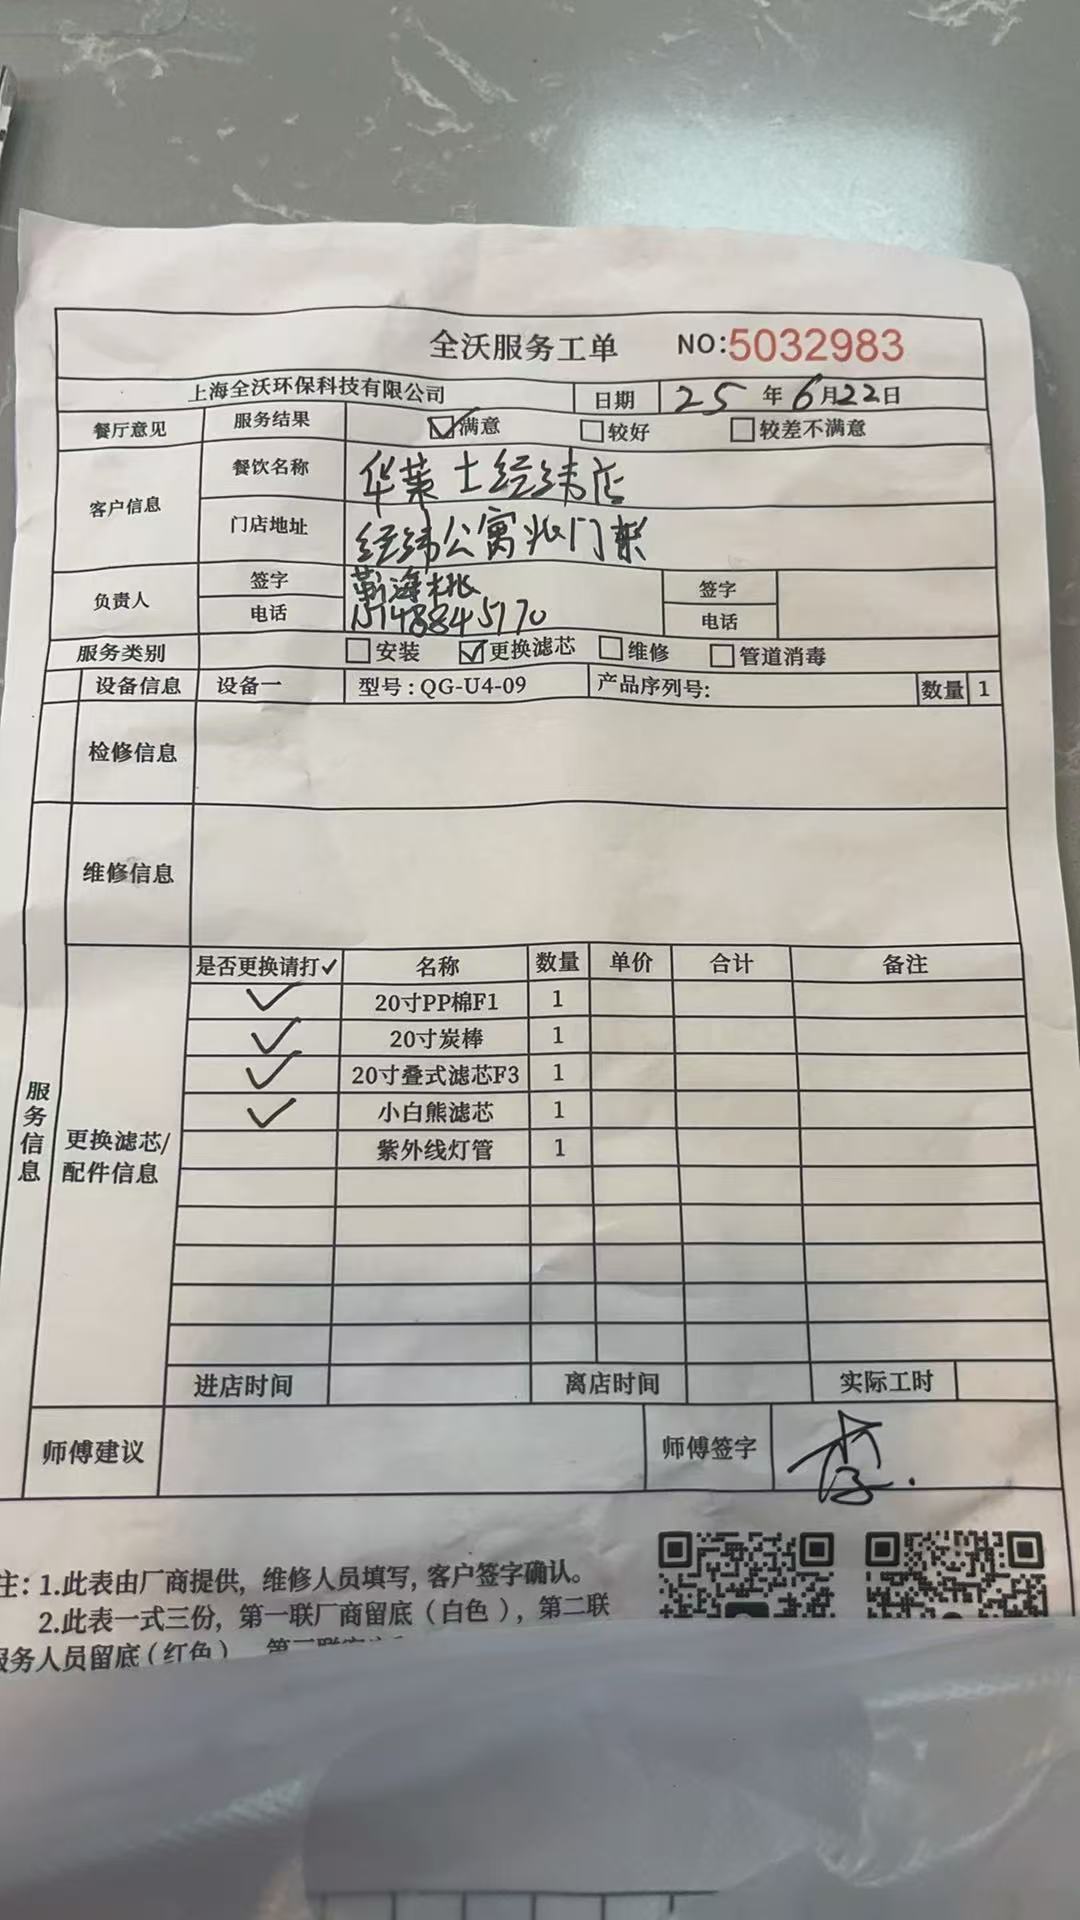 全沃服务工单 NO:5032983
上海全沃环保科技有限公司 日期 25年6月22日
餐厅意见 服务结果 满意 较好 较差不满意
客户信息 餐饮名称 华莱士经纬店
门店地址 经纬公寓北门
负责人 签字 靳海桃 签字
电话 15148845170 电话
服务类别 安装 更换滤芯 维修 管道消毒
设备信息 设备一 型号:QG-U4-09 产品序列号: 数量 1
检修信息
维修信息
服务信息
更换滤芯/配件信息
是否更换请打✓ 名称 数量 单价 合计 备注
✓ 20寸PP棉F1 1
✓ 20寸炭棒 1
✓ 20寸叠式滤芯F3 1
✓ 小白熊滤芯 1
紫外线灯管 1
进店时间 离店时间 实际工时
师傅建议 师傅签字
注:1.此表由厂商提供,维修人员填写,客户签字确认。
2.此表一式三份,第一联厂商留底(白色),第二联
服务人员留底(红色)